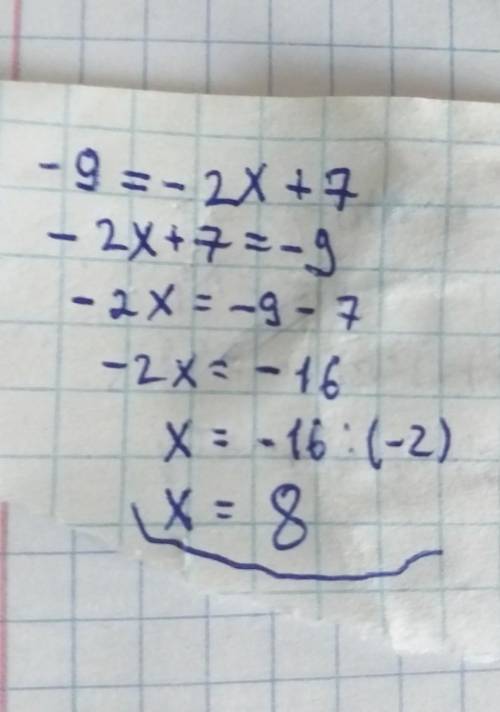 -9 = - 2x + 7
- 2x + 7 = -9
- 2x = -9 - 7
-2x = -16
x = -16 : (-2)
x = 8